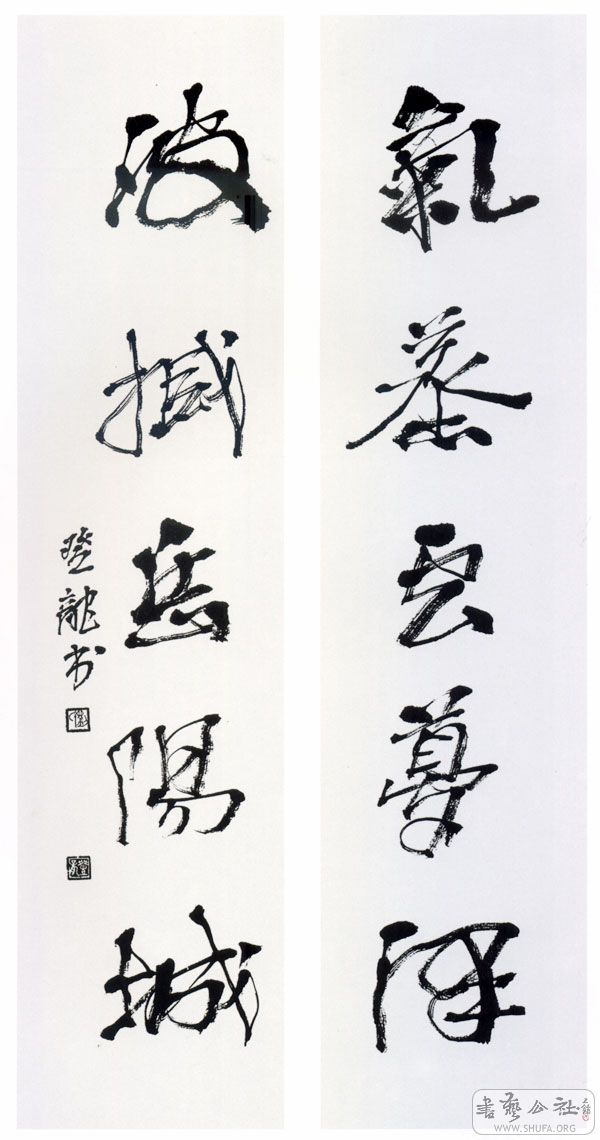 氣蒸云夢澤
波撼岳陽城
龍書
書藝公社
WWW.SHUFA.ORG